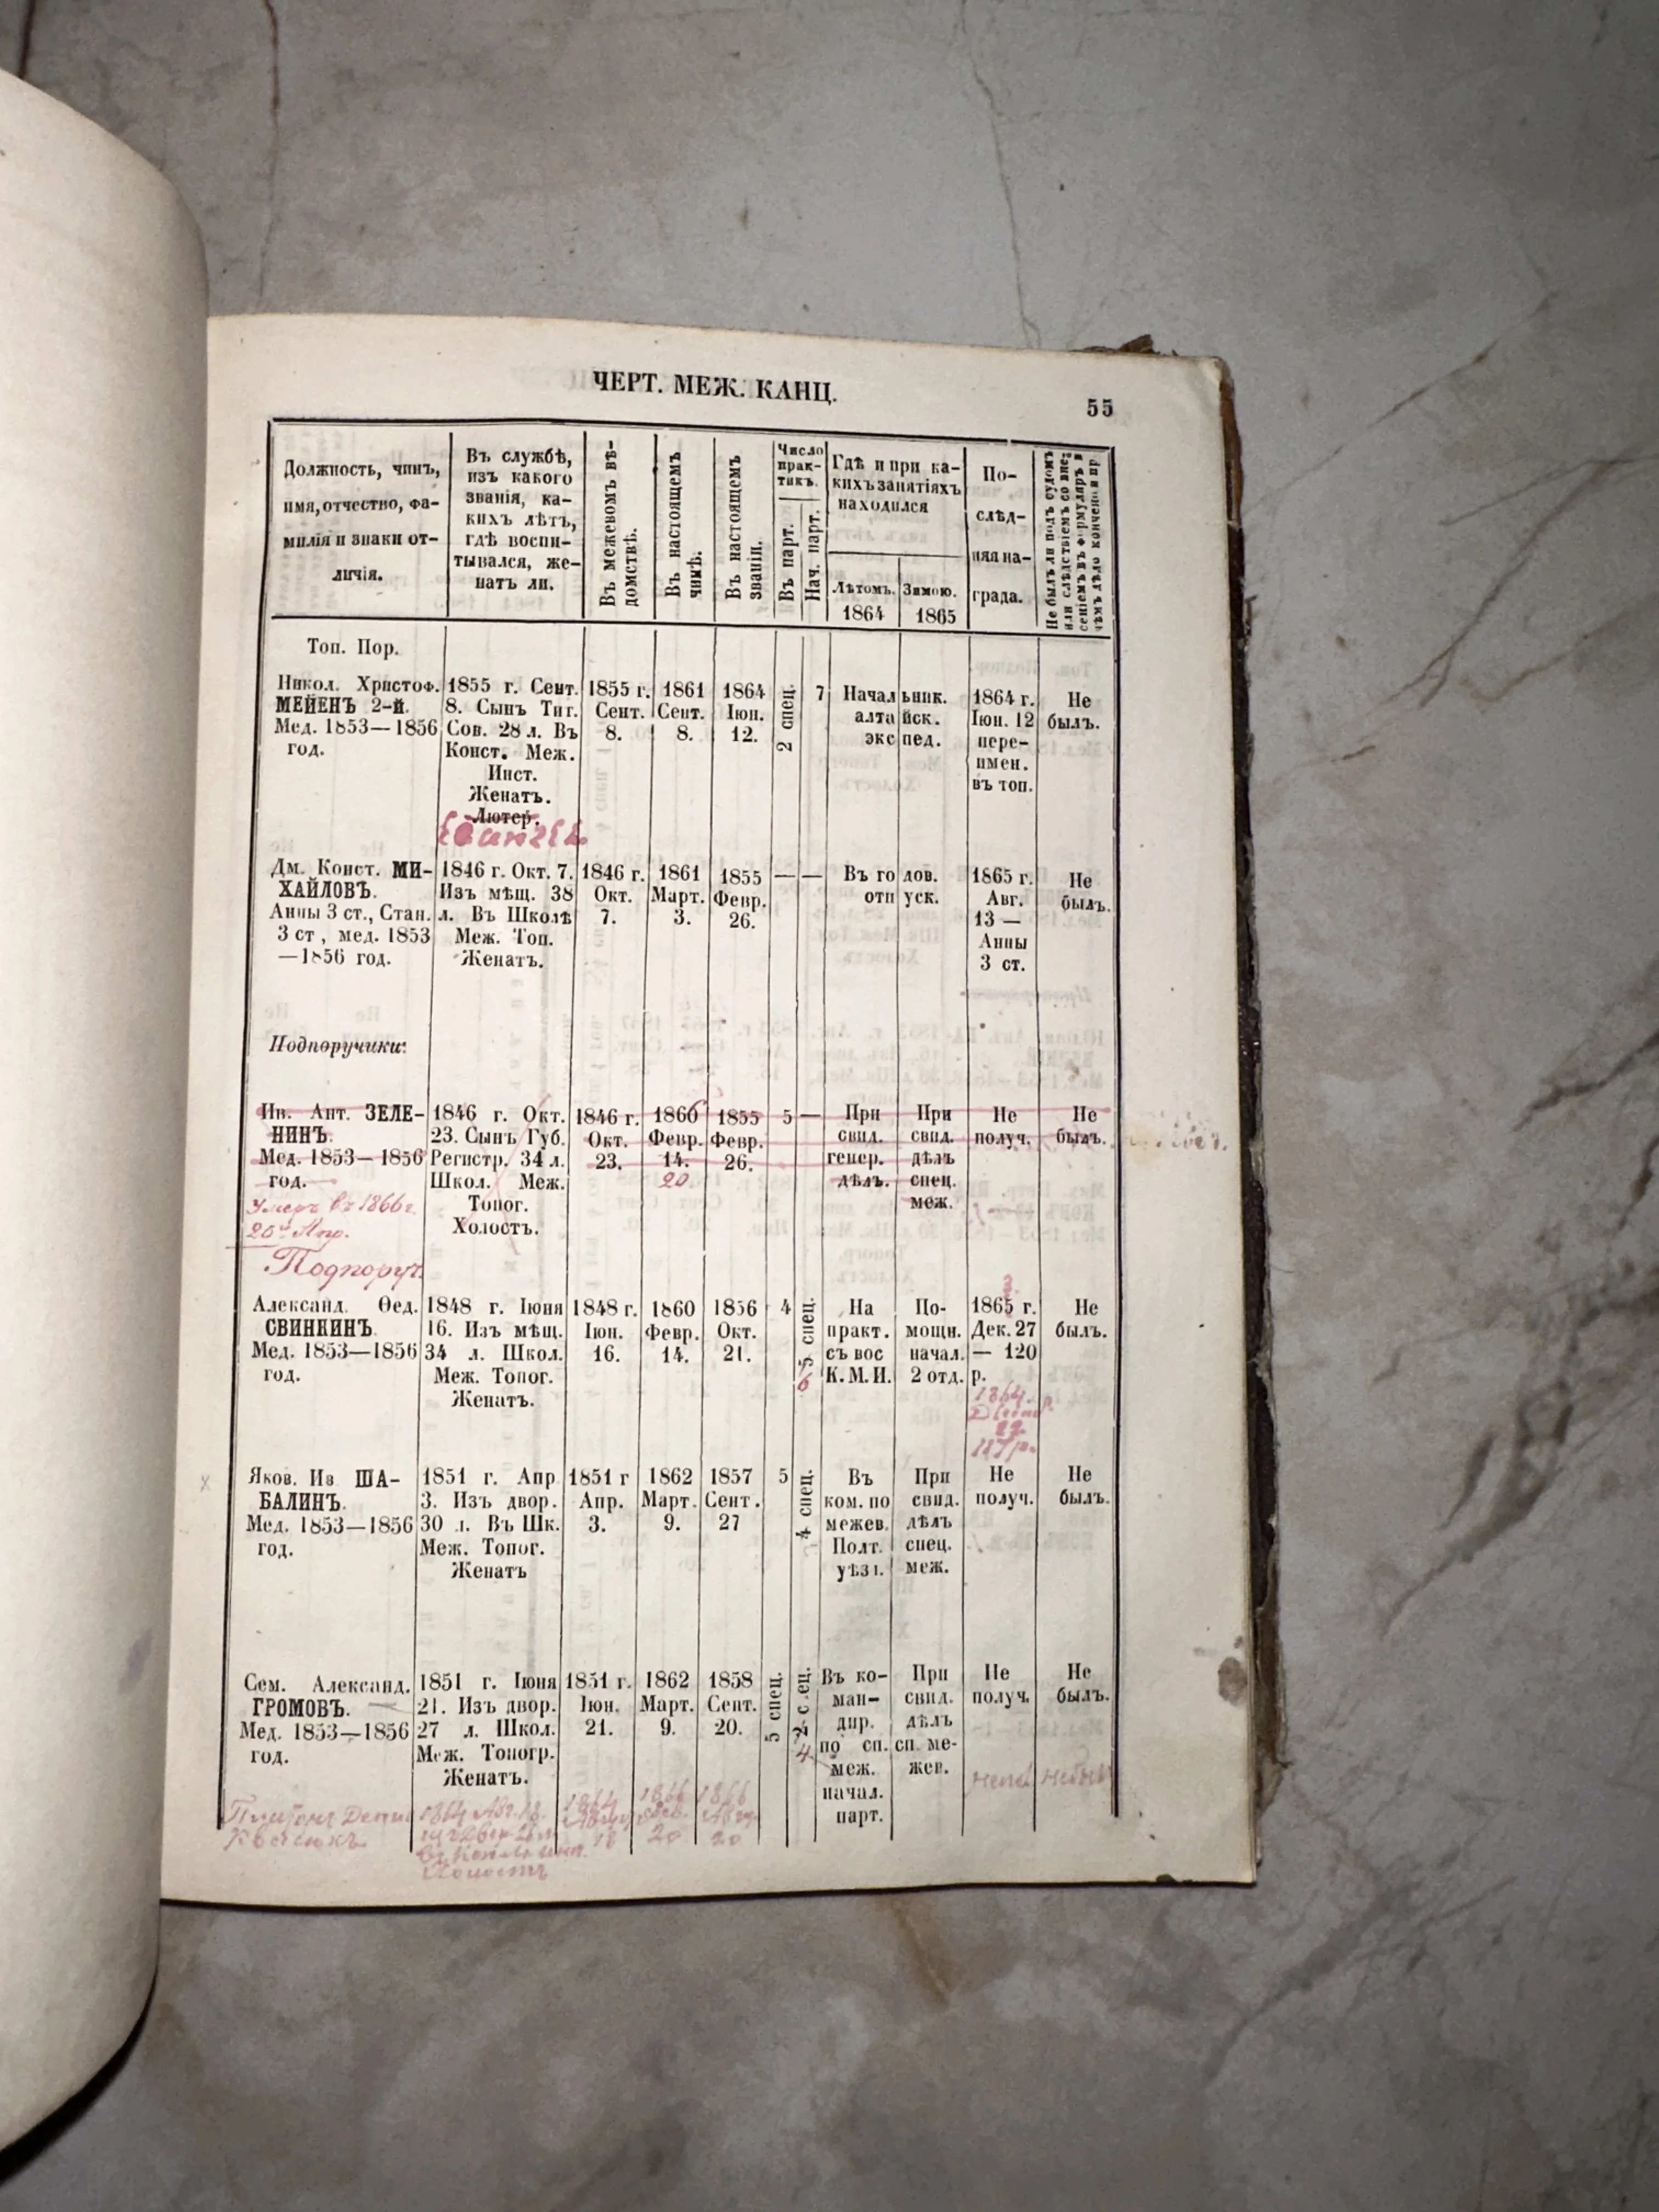 ЧЕРТ. МЕЖ. КАНЦ.
55
Должность, чинъ,
имя, отчество, фа-
милія и знаки от-
личія.
Въ службѣ,
изъ какого
званія, ка-
кихъ лѣтъ,
гдѣ воспи-
тывался, же-
натъ ли.
Въ межевомъ вѣ-
домствѣ.
Въ настоящемъ
чинѣ.
Въ настоящемъ
званіи.
Число
прак-
тикъ.
Въ парт.
Нач. парт.
Гдѣ и при ка-
кихъ занятіяхъ
находился
Лѣтомъ.
1864
Зимою.
1865
По-
слѣд-
няя на-
града.
Не былъ ли подъ судомъ
или слѣдствіемъ со вне-
сеніемъ въ формуляръ и
чѣмъ дѣло кончено и пр
Топ. Пор.
Никол. Христоф.
МЕЙЕНЪ 2-й.
Мед. 1853—1856
год.
1855 г. Сент.
8. Сынъ Тит.
Сов. 28 л. Въ
Конст. Меж.
Инст.
Женатъ.
Лютер.
1855 г.
Сент.
8.
1861
Сент.
8.
1864
Іюн.
12.
2 спец.
7
Начальник.
алтайск.
экспед.
1864 г.
Іюн. 12
пере-
имен.
въ топ.
Не
былъ.
Дм. Конст. МИ-
ХАЙЛОВЪ.
Анны 3 ст., Стан.
3 ст, мед. 1853
—1856 год.
1846 г. Окт. 7.
Изъ мѣщ. 38
л. Въ Школѣ
Меж. Топ.
Женатъ.
1846 г.
Окт.
7.
1861
Март.
3.
1855
Февр.
26.
—
—
Въ годов.
отпуск.
1865 г.
Авг.
13 —
Анны
3 ст.
Не
былъ.
Подпоручики:
Ив. Ант. ЗЕЛЕ-
НИНЪ.
Мед. 1853—1856
год.
Умеръ въ 1866 г.
20 Апр.
1846 г. Окт.
23. Сынъ Губ.
Регистр. 34 л.
Школ. Меж.
Топог.
Холостъ.
1846 г.
Окт.
23.
1860
Февр.
14.
20
1855
Февр.
26.
5
—
При
свид.
генер.
дѣлъ.
При
свид.
дѣлъ
спец.
меж.
Не
получ.
Не
былъ.
Подпоруч.
Александ. Ѳед.
СВИНКИНЪ
Мед. 1853—1856
год.
1848 г. Іюня
16. Изъ мѣщ.
34 л. Школ.
Меж. Топог.
Женатъ.
1848 г.
Іюн.
16.
1860
Февр.
14.
1856
Окт.
21.
4
5 спец.
6
На
практ.
съ вос
К. М. И.
По-
мощн.
начал.
2 отд.
3
1865 г.
Дек. 27
— 120
р.
1864.
27
Не
былъ.
Яков. Ив ША-
БАЛИНЪ.
Мед. 1853—1856
год.
1851 г. Апр
3. Изъ двор.
30 л. Въ Шк.
Меж. Топог.
Женатъ
1851 г
Апр.
3.
1862
Март.
9.
1857
Сент.
27
5
4 спец.
Въ
ком. по
межев.
Полт.
уѣзд.
При
свид.
дѣлъ
спец.
меж.
Не
получ.
Не
былъ.
Сем. Александ.
ГРОМОВЪ.
Мед. 1853—1856
год.
1851 г. Іюня
21. Изъ двор.
27 л. Школ.
Меж. Топогр.
Женатъ.
1851 г.
Іюн.
21.
1862
Март.
9.
1858
Сент.
20.
5 спец.
2 спец.
4
Въ ко-
ман-
дир.
по сп.
меж.
начал.
парт.
При
свид.
дѣлъ
сп. ме-
жев.
Не
получ.
Не
былъ.
1864 Авг. 18.
Холостъ
1864
18
1866
20
1866
20